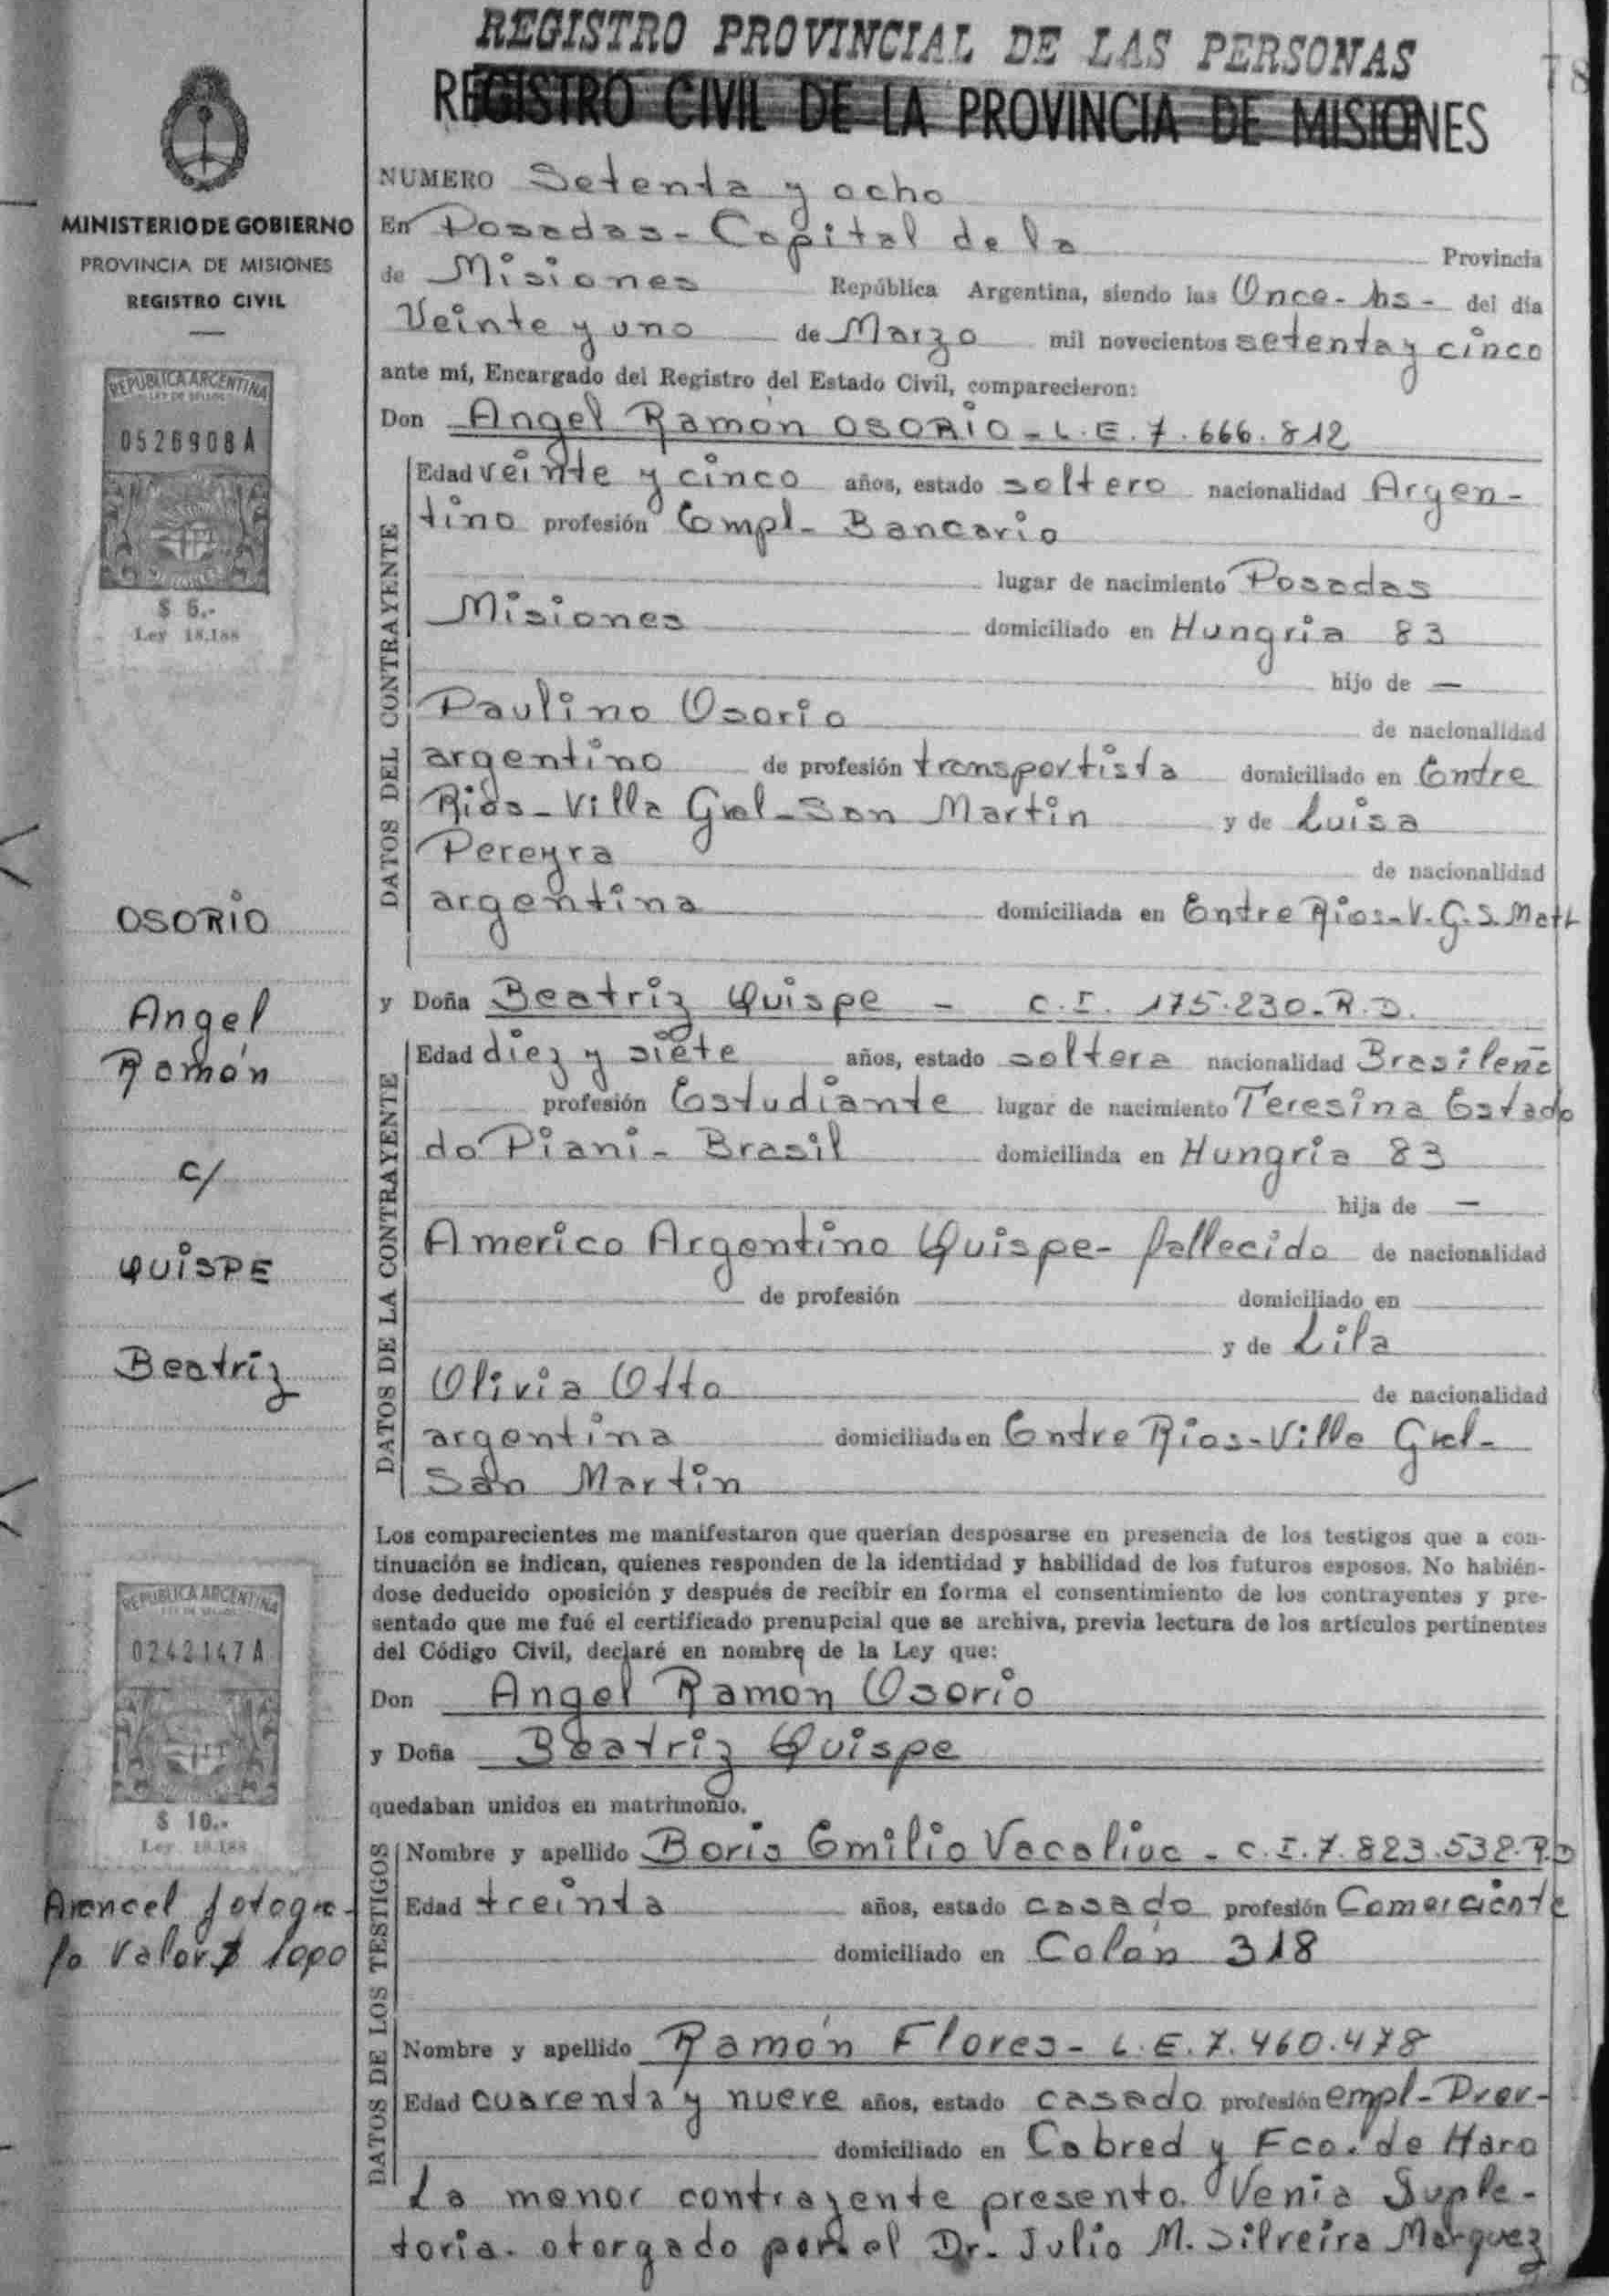 REGISTRO PROVINCIAL DE LAS PERSONAS
78
REGISTRO CIVIL DE LA PROVINCIA DE MISIONES
MINISTERIO DE GOBIERNO
PROVINCIA DE MISIONES
REGISTRO CIVIL
REPUBLICA ARGENTINA
LEY DE SELLOS
0526908 A
MISIONES
$ 5.-
Ley 18.188
OSORIO
Angel
Ramón
c/
QUISPE
Beatriz
REPUBLICA ARGENTINA
LEY DE SELLOS
0242147 A
$ 10.-
Ley 18.188
Arencel fotogra-
fo valor $ 1000
NUMERO Setenta y ocho
En Posadas - Capital de la Provincia
de Misiones República Argentina, siendo las Once - hs - del día
Veinte y uno de Marzo mil novecientos setenta y cinco
ante mí, Encargado del Registro del Estado Civil, comparecieron:
Don Angel Ramón OSORIO - L.E. 7.666.812
DATOS DEL CONTRAYENTE
Edad veinte y cinco años, estado soltero nacionalidad Argen-
tino profesión Empl- Bancario
lugar de nacimiento Posadas
Misiones domiciliado en Hungria 83
hijo de —
Paulino Osorio de nacionalidad
argentino de profesión transportista domiciliado en Entre
Rios - Villa Gral - San Martin y de Luisa
Pereyra de nacionalidad
argentina domiciliada en Entre Rios - V. G. S. Mart
y Doña Beatriz Quispe - C.I. 175.230 - R.D.
DATOS DE LA CONTRAYENTE
Edad diez y siete años, estado soltera nacionalidad Brasileña
profesión Estudiante lugar de nacimiento Teresina Estado
do Piani - Brasil domiciliada en Hungria 83
hija de —
Americo Argentino Quispe - fallecido de nacionalidad
de profesión domiciliado en
y de Lila
Olivia Otto de nacionalidad
argentina domiciliada en Entre Rios - Villa Gral -
San Martin
Los comparecientes me manifestaron que querían desposarse en presencia de los testigos que a con-
tinuación se indican, quienes responden de la identidad y habilidad de los futuros esposos. No habién-
dose deducido oposición y después de recibir en forma el consentimiento de los contrayentes y pre-
sentado que me fué el certificado prenupcial que se archiva, previa lectura de los artículos pertinentes
del Código Civil, declaré en nombre de la Ley que:
Don Angel Ramon Osorio
y Doña Beatriz Quispe
quedaban unidos en matrimonio.
DATOS DE LOS TESTIGOS
Nombre y apellido Boris Emilio Vacaliuc - C.I. 7.823.538 - R.D
Edad treinta años, estado casado profesión Comerciante
domiciliado en Colón 318
Nombre y apellido Ramón Flores - L.E. 7.460.478
Edad cuarenta y nueve años, estado casado profesión empl-
domiciliado en Cabred y Fco. de Haro
La menor contrayente presento. Venia Suple-
toria. otorgado por el Dr. Julio M. Silveira Marquez